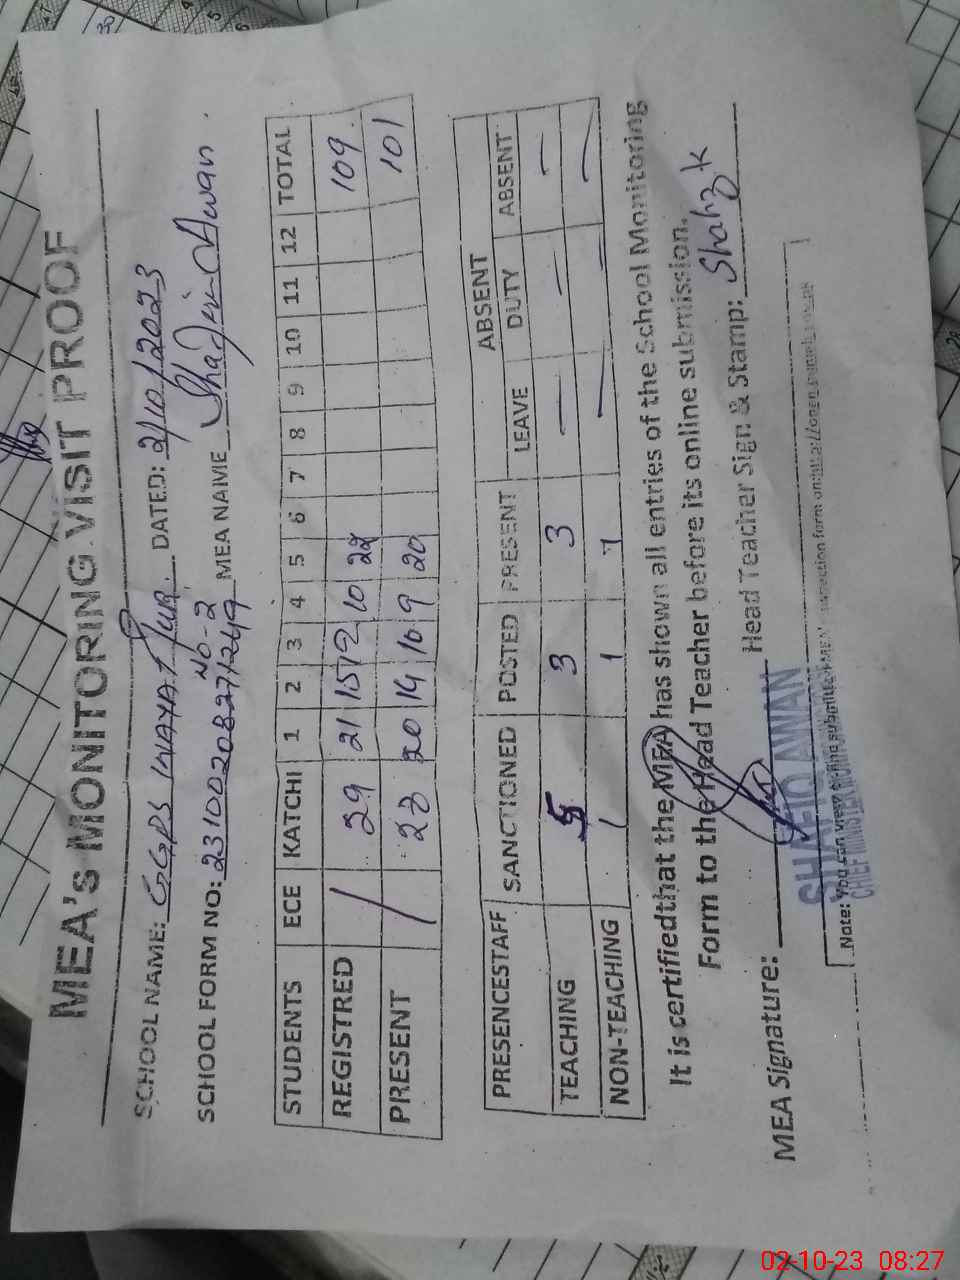 MEA's MONITORING VISIT PROOF
SCHOOL NAME: GGPS INAYAT PUR. DATED: 2/10/2023
NO-2
SCHOOL FORM NO: 23100208271249 MEA NAME Awan
STUDENTS ECE KATCHI 1 2 3 4 5 6 7 8 9 10 11 12 TOTAL
REGISTRED / 29 21 15 12 10 22 109
PRESENT / 23 20 14 9 20 101
ABSENT
PRESENCESTAFF SANCTIONED POSTED PRESENT LEAVE DUTY ABSENT
TEACHING 5 3 3 — — —
NON-TEACHING 1 1 1 — — —
It is certifiedthat the MEA has shown all entries of the School Monitoring
Form to the Head Teacher before its online submission.
MEA Signature: Head Teacher Sign & Stamp:
SHAFIQ AWAN
CHIEF MINISTER
Note: You can view on
02-10-23 08:27